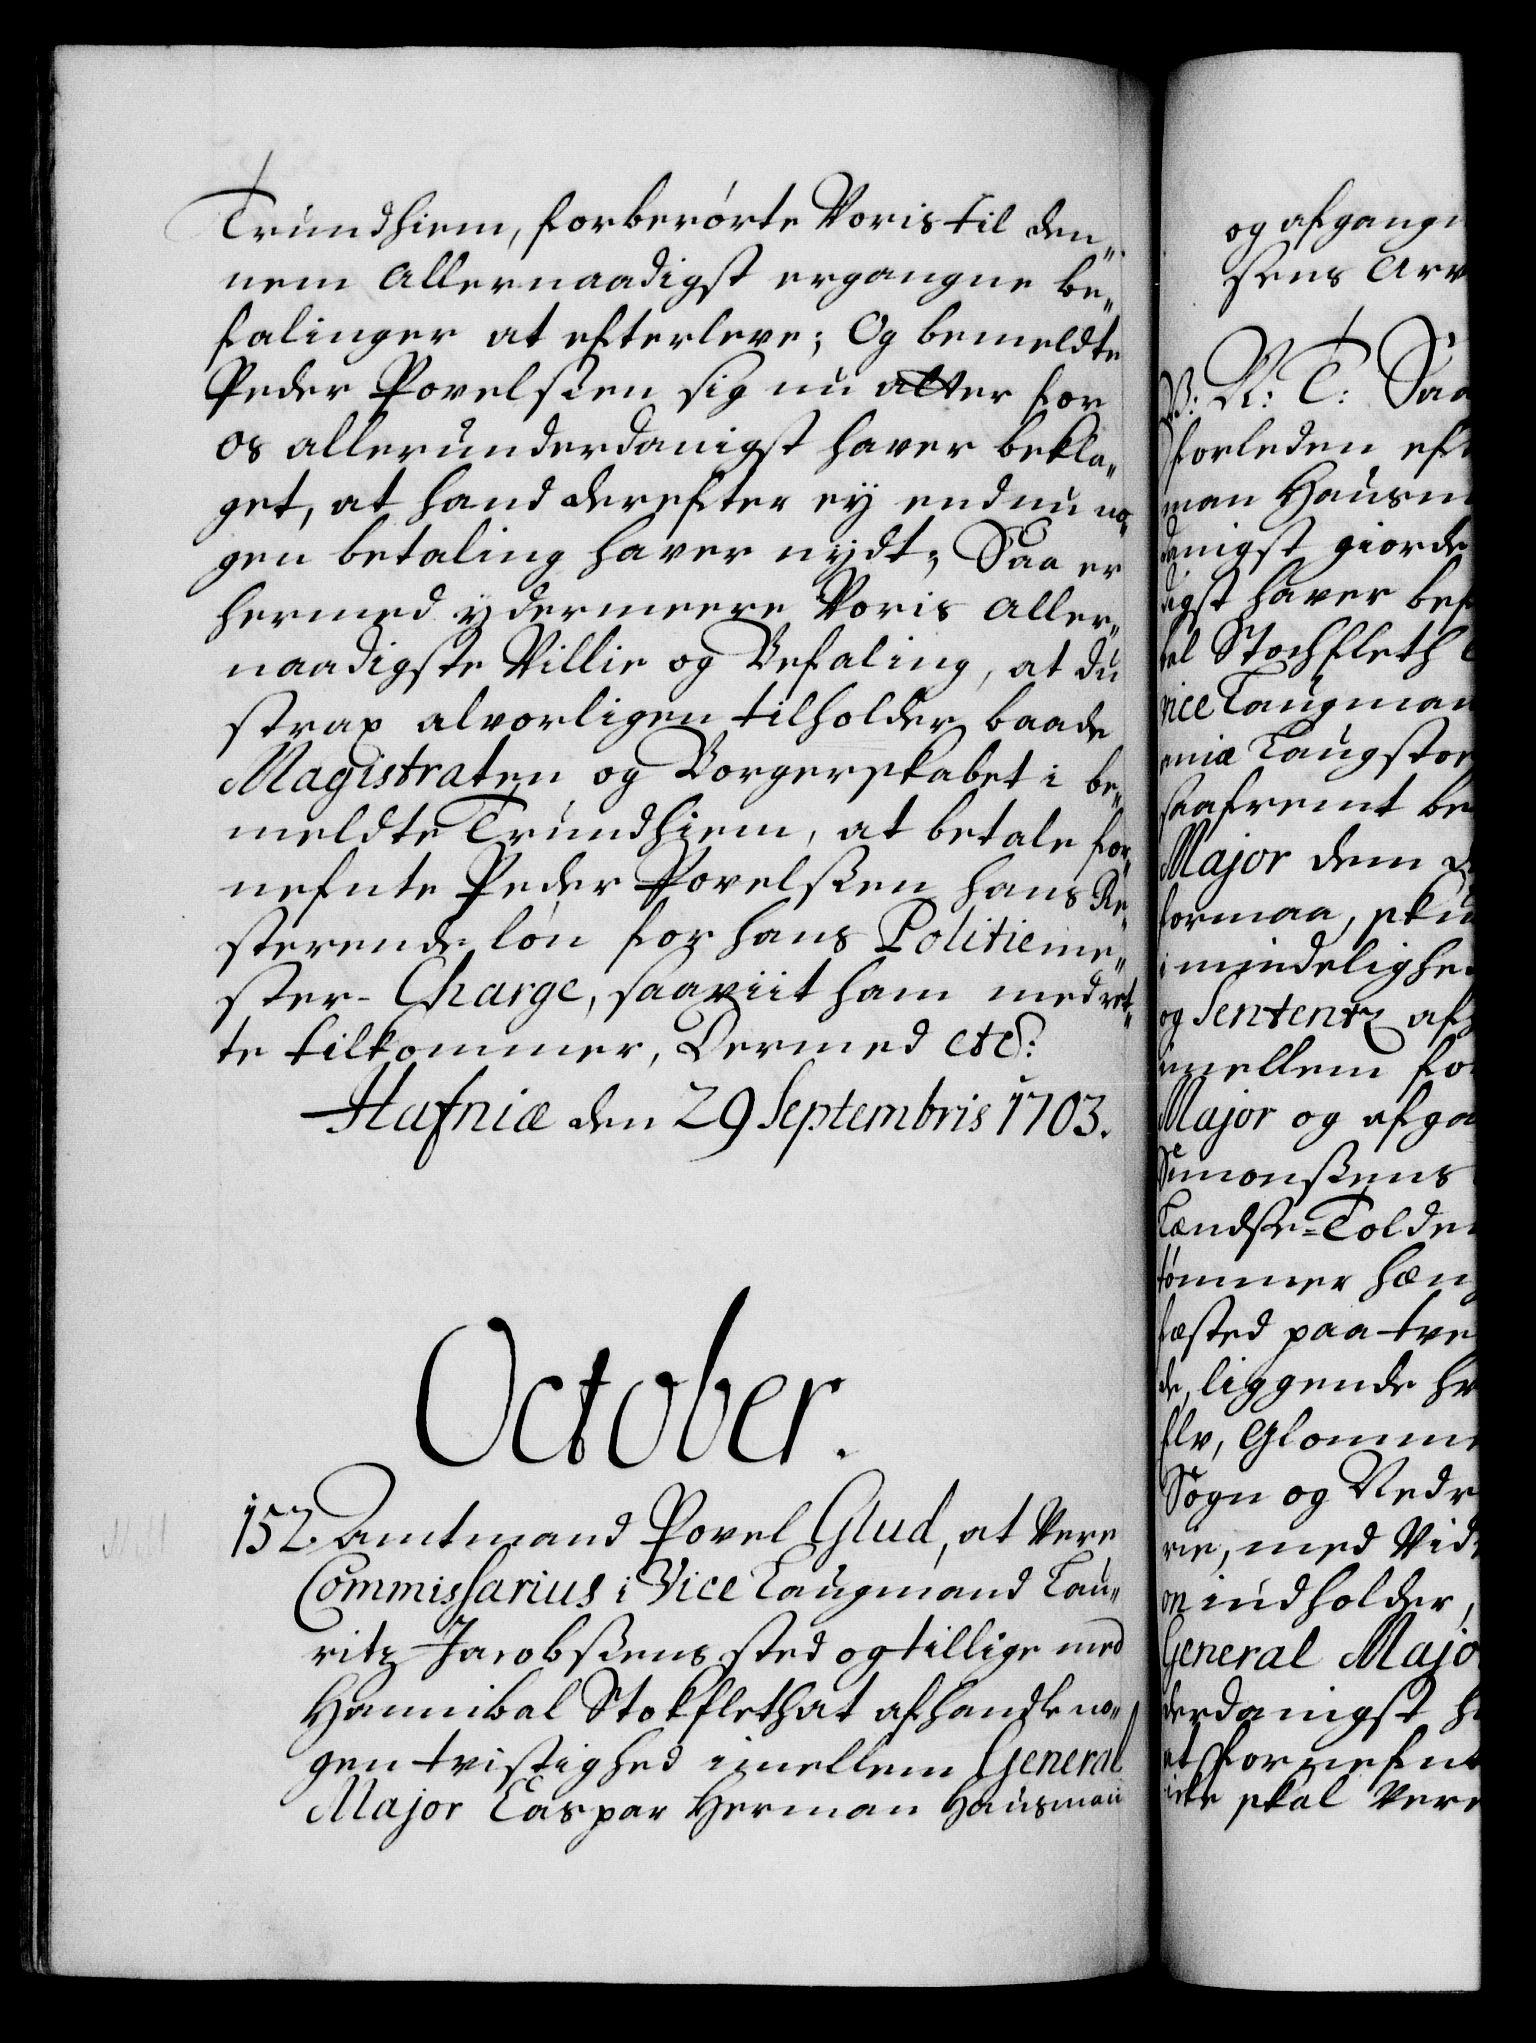 Trundhiem, forberørte Voris til den„
nem allernaadigst ergangne be„
falinger at efterleve; Og bemeldte
Peder Povelsßen sig nu atter for
os allerunderdanigst haver bekla„
get, at hand derefter ey endnu no„
gen betaling haver nydt; Saa er
hermed ydermeere Voris Aller„
naadigste Villie og Befaling, at du
strax alvorligen tilholder baade
Magistraten og Borgerskabet i be„
meldte Trundhiem, at betale for„
nefnte Peder Povelsßen hans Re„
sterende løn for hans Politieme„
ster- Charge, saaviit ham med ret„
te tilkommer, Dermed etc:
Hafniæ den 29 Septembris 1703.
October.
152. Amtmand Povel Glud, at Vere
Commissarius i Vice Laugmand Lau„
ritz Jacobsßens sted og tillige med
Hannibal Stokfleth at afhandle no„
gen tvistighed imellem General
Major Caspar Herman Hausman
og afgangn
sens Arv
V: R: T: Saa
forleden eft
man Hausm
danigst giorde
digst haver bef
bal Stochfleth
vice Laugman
niæ Laugstoe
saafremt be
Major dem
formaa, sku
i mindelighe
og Sententz af
imellem for
Major og afga
Simonsßens
Lændse-Tolde
tømmer hæng
fæsted paa tve
de, liggende hv
elv, Glomme
Sogn og Nedr
rie, med Vid
on indholder,
General Majo
derdanigst h
at fornefnt
icke skal Vere